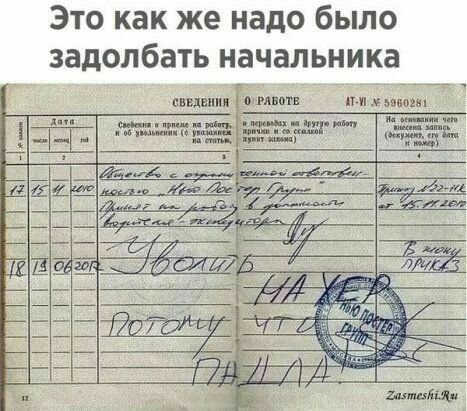 Это как же надо было
задолбать начальника
СВЕДЕНИЯ О РАБОТЕ АТ-VI № 5960281
№ записи
Дата
Сведения о приеме на работу, о переводах на другую работу
и об увольнении (с указанием причин и со ссылкой
на статью, пункт закона)
На основании чего
внесена запись
(документ, его дата
и номер)
число месяц год
1 2 3
Общество с ограниченной ответствен-
17 15 11 2010 ностью „Нью Постер Групп“ Приказ №22-НК
Принят на работу в должности от 15.11.2010
водителя-экспедитора
18 19 06 2017 УВОЛИТЬ В жопу
ПРИКАЗ
НА ХЕР
НЬЮ ПОСТЕР
ГРУПП
ПОТОМУ ЧТО
ПАДЛА!
12
Zasmeshi.Ru